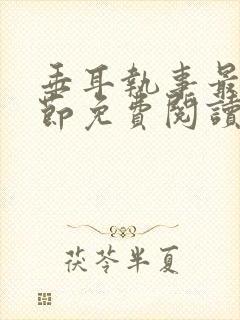 垂耳執事最
節免費閱讀
茯苓半夏